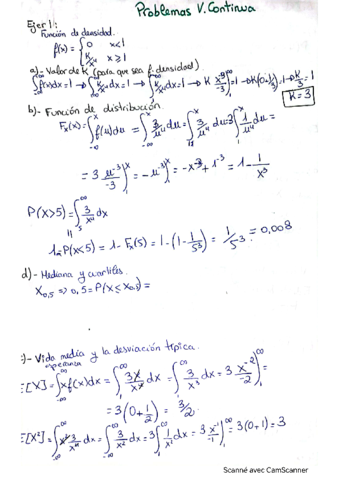 Problemas V. Continua
Ejer 1:
Función de densidad.
f(x) = { 0 x<1
K/x⁴ x≥1
a)- Valor de K (para que sea f. densidad)
∫f(x)dx = 1 → ∫K/x⁴ dx = 1 → ∫K/x⁴ dx = 1 → K x⁻³/-3 = 1 → K(0+1/3) = 1 → K/3 = 1
K = 3
b)- Función de distribución.
Fx(x) = ∫f(u)du = ∫3/u⁴ du = ∫3/u⁴ du = 3∫1/u⁴ du =
= 3 u⁻³/-3 = -u⁻³ = -x⁻³ + 1⁻³ = 1 - 1/x³
P(X>5) = ∫3/x⁴ dx
1-P(X<5) = 1 - Fx(5) = 1 - (1 - 1/5³) = 1/5³ = 0,008
d)- Mediana y cuartiles.
X0,5 ⇒ 0,5 = P(X ≤ X0,5) =
)- Vida media y la desviación típica.
esperanza
E[X] = ∫x f(x)dx = ∫3x/x⁴ dx = ∫3/x³ dx = 3 x⁻²/-2
= 3(0 + 1/2) = 3/2
E[X²] = ∫x² 3/x⁴ dx = ∫3/x² dx = 3∫1/x² dx = 3 x⁻¹/-1 = 3(0+1) = 3
Scanné avec CamScanner